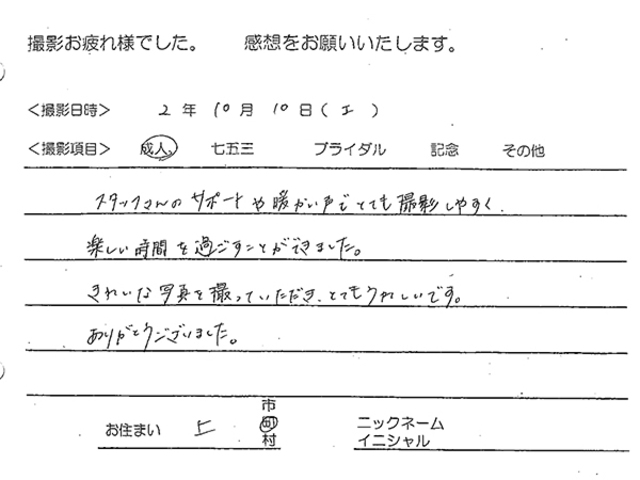 撮影お疲れ様でした。 感想をお願いいたします。
<撮影日時> 2 年 10 月 10 日( 土 )
<撮影項目> 成人 七五三 ブライダル 記念 その他
スタッフさんのサポートや暖かい声でとても撮影しやすく、
楽しい時間を過ごすことができました。
きれいな写真を撮っていただき、とてもうれしいです。
ありがとうございました。
お住まい 市
町
村
ニックネーム
イニシャル